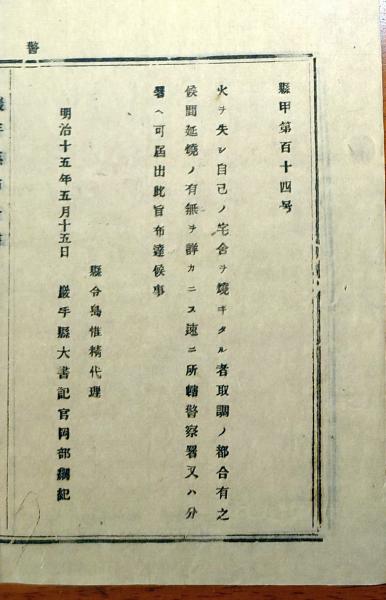 縣甲第百十四号
火ヲ失シ自己ノ宅舍ヲ燒キタル者取調ノ都合有之
候間延燒ノ有無ヲ詳カニス速ニ所轄警察署又ハ分
署ヘ可届出此旨布達候事
縣令島惟精代理
明治十五年五月十五日 巖手縣大書記官岡部綱紀
警